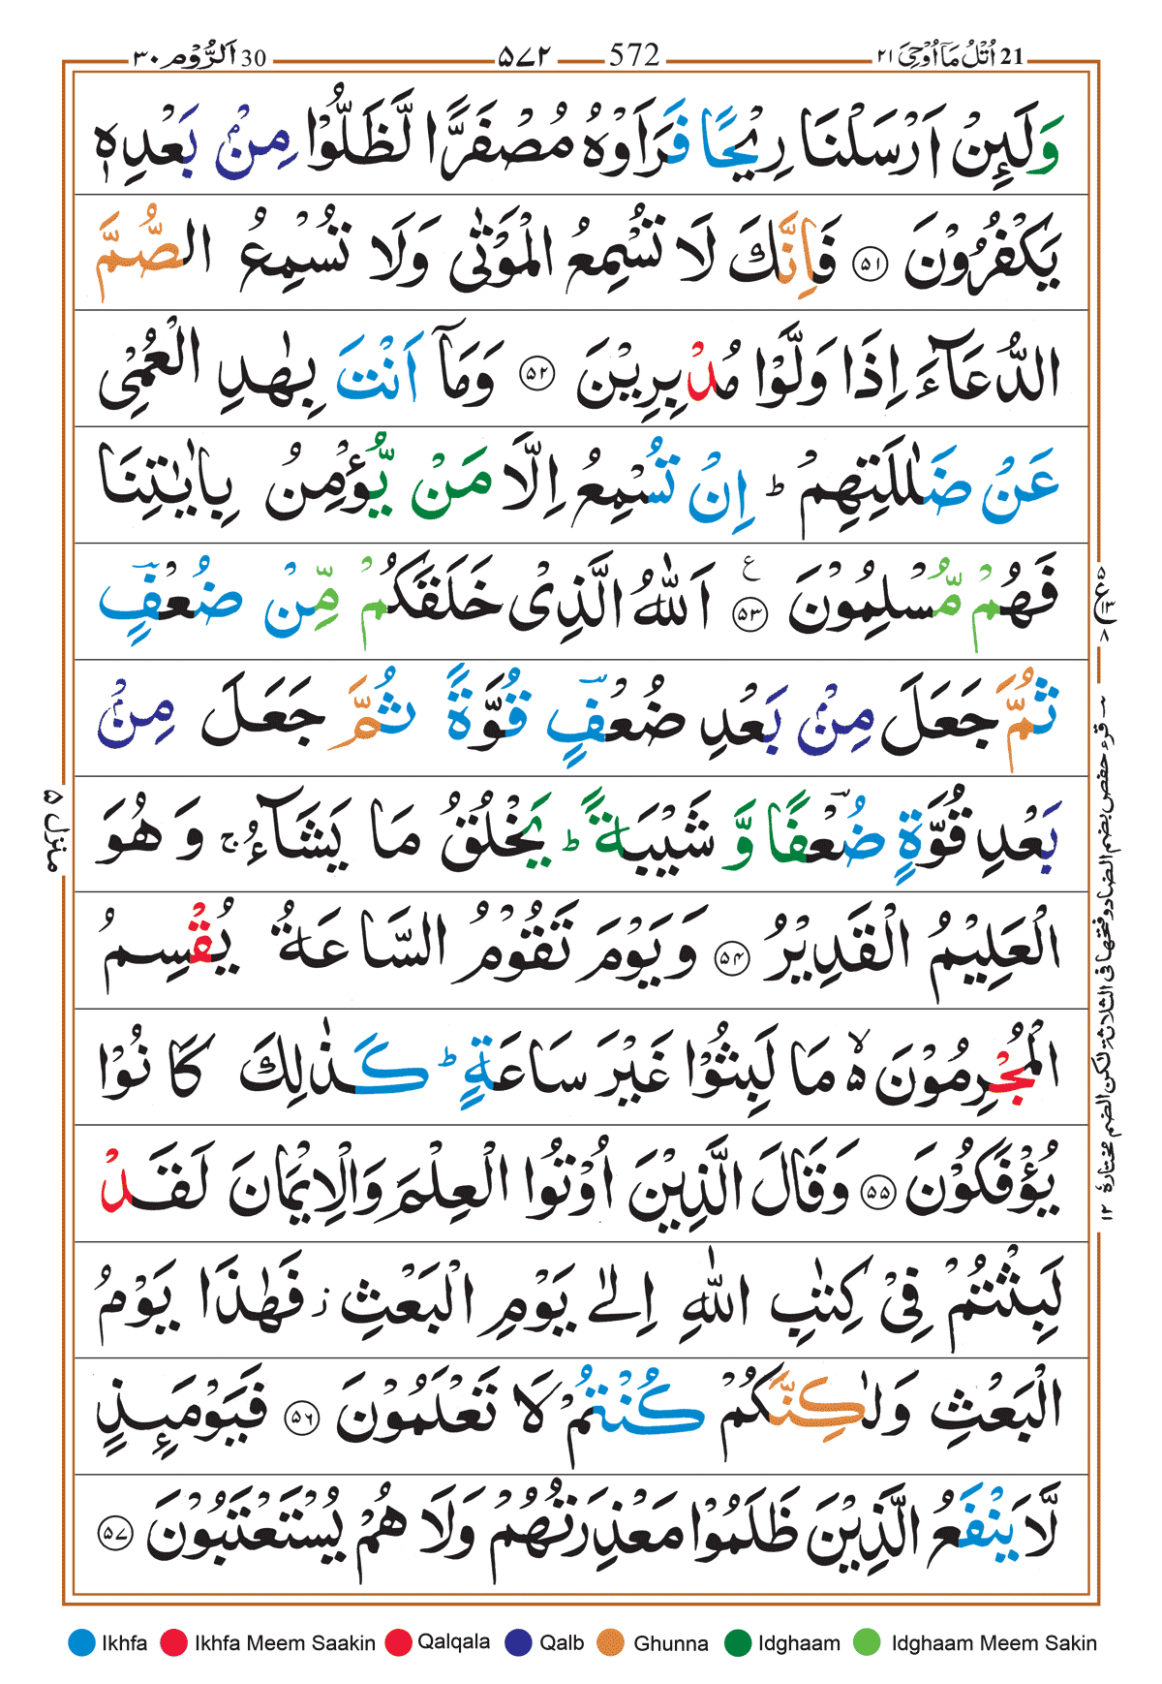 21 اُتْلُ مَاۤ اُوْحِیَ ۲۱ 572 ۵۷۲ 30 اَلرُّوْم ۳۰
وَلَىِٕنْ اَرْسَلْنَا رِیْحًا فَرَاَوْهُ مُصْفَرًّا لَّظَلُّوْا مِنْۢ بَعْدِهٖ
یَكْفُرُوْنَ ﴿۵۱﴾ فَاِنَّكَ لَا تُسْمِعُ الْمَوْتٰی وَلَا تُسْمِعُ الصُّمَّ
الدُّعَآءَ اِذَا وَلَّوْا مُدْبِرِیْنَ ﴿۵۲﴾ وَمَاۤ اَنْتَ بِهٰدِ الْعُمْیِ
عَنْ ضَلٰلَتِهِمْ ؕ اِنْ تُسْمِعُ اِلَّا مَنْ یُّؤْمِنُ بِاٰیٰتِنَا
فَهُمْ مُّسْلِمُوْنَ ﴿۵۳﴾ ع اَللّٰهُ الَّذِیْ خَلَقَكُمْ مِّنْ ضُعْفٍ
ثُمَّ جَعَلَ مِنْۢ بَعْدِ ضُعْفٍ قُوَّةً ثُمَّ جَعَلَ مِنْۢ
بَعْدِ قُوَّةٍ ضُعْفًا وَّ شَیْبَةً ؕ یَخْلُقُ مَا یَشَآءُ ۚ وَ هُوَ
الْعَلِیْمُ الْقَدِیْرُ ﴿۵۴﴾ وَیَوْمَ تَقُوْمُ السَّاعَةُ یُقْسِمُ
الْمُجْرِمُوْنَ ۙ۬ مَا لَبِثُوْا غَیْرَ سَاعَةٍ ؕ كَذٰلِكَ كَانُوْا
یُؤْفَكُوْنَ ﴿۵۵﴾ وَقَالَ الَّذِیْنَ اُوْتُوا الْعِلْمَ وَالْاِیْمَانَ لَقَدْ
لَبِثْتُمْ فِیْ كِتٰبِ اللّٰهِ اِلٰی یَوْمِ الْبَعْثِ ؗ فَهٰذَا یَوْمُ
الْبَعْثِ وَلٰكِنَّكُمْ كُنْتُمْ لَا تَعْلَمُوْنَ ﴿۵۶﴾ فَیَوْمَىِٕذٍ
لَّا یَنْفَعُ الَّذِیْنَ ظَلَمُوْا مَعْذِرَتُهُمْ وَلَا هُمْ یُسْتَعْتَبُوْنَ ﴿۵۷﴾
منزل ۵
قرء حفص بضم الضاد و فتحها فی الثلاثة لكن الضم مختارة ۱۲
Ikhfa Ikhfa Meem Saakin Qalqala Qalb Ghunna Idghaam Idghaam Meem Sakin